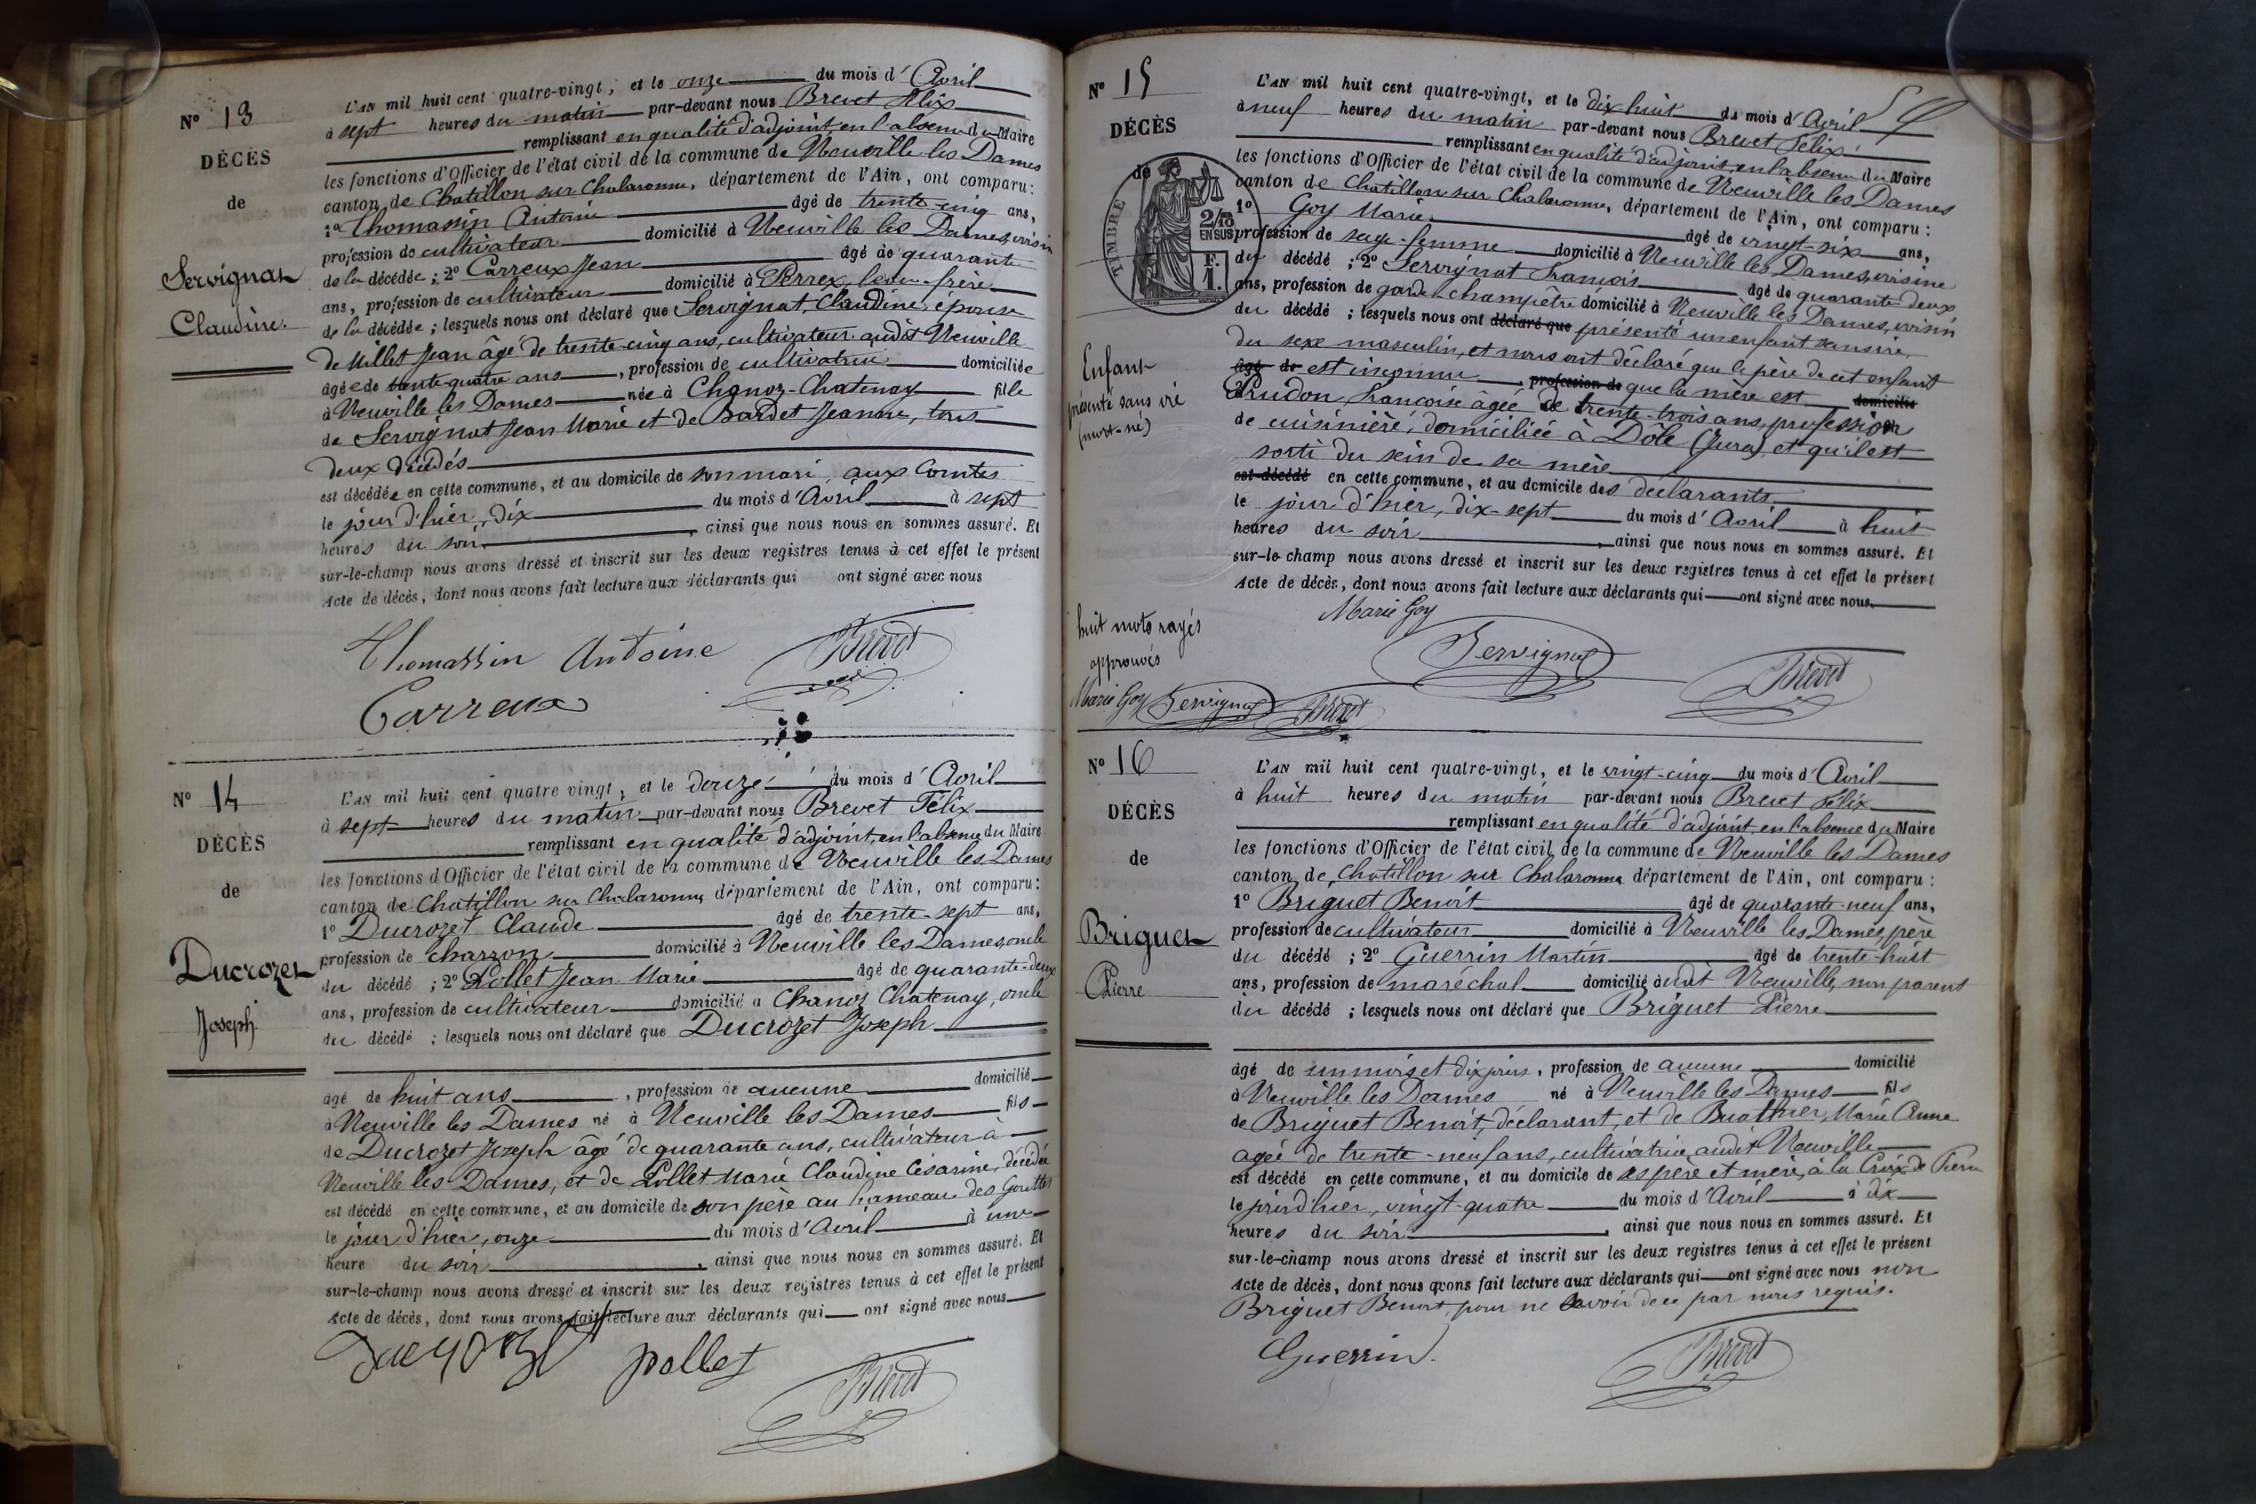 N° 13
DÉCÈS
de
Servignat
Claudine.
L'AN mil huit cent quatre-vingt, et le onze du mois d'Avril
à sept heures du matin par-devant nous Brevet Félix
remplissant en qualité d'adjoint, en l'absence du Maire
les fonctions d'Officier de l'état civil de la commune de Neuville les Dames
canton de Chatillon sur Chalaronne, département de l'Ain, ont comparu :
1° Thomassin Antoine âgé de trente-cinq ans,
profession de cultivateur domicilié à Neuville les Dames, voisin
de la décédée ; 2° Carreux Jean âgé de quarante
ans, profession de cultivateur domicilié à Perrex, beau-frère
de la décédée ; lesquels nous ont déclaré que Servignat Claudine, épouse
de Millet Jean âgé de trente-cinq ans, cultivateur audit Neuville
âgée de trente-quatre ans, profession de cultivatrice domiciliée
à Neuville les Dames née à Chanoz-Chatenay fille
de Servignat Jean Marie et de Bardet Jeanne, tous
deux décédés
est décédée en cette commune, et au domicile de son mari, aux Comtes
le jour d'hier, dix du mois d'Avril à sept
heures du soir, ainsi que nous nous en sommes assuré. Et
sur-le-champ nous avons dressé et inscrit sur les deux registres tenus à cet effet le présent
Acte de décès, dont nous avons fait lecture aux déclarants qui ont signé avec nous
Thomassin Antoine Brevet
Carreux
N° 14
DÉCÈS
de
Ducrozet
Joseph
L'AN mil huit cent quatre vingt, et le douze du mois d'Avril
à sept heures du matin par-devant nous Brevet Félix
remplissant en qualité d'adjoint, en l'absence du Maire
les fonctions d'Officier de l'état civil de la commune de Neuville les Dames
canton de Chatillon sur Chalaronne département de l'Ain, ont comparu :
1° Ducrozet Claude âgé de trente-sept ans,
profession de charron domicilié à Neuville les Dames, oncle
du décédé ; 2° Pollet Jean Marie âgé de quarante-deux
ans, profession de cultivateur domicilié à Chanoz Chatenay, oncle
du décédé ; lesquels nous ont déclaré que Ducrozet Joseph
âgé de huit ans, profession de aucune domicilié
à Neuville les Dames né à Neuville les Dames fils
de Ducrozet Joseph âgé de quarante ans, cultivateur à
Neuville les Dames, et de Pollet Marie Claudine Césarine, décédée
est décédé en cette commune, et au domicile de son père au hameau des Gouttes
le jour d'hier, onze du mois d'Avril à une
heure du soir, ainsi que nous nous en sommes assuré. Et
sur-le-champ nous avons dressé et inscrit sur les deux registres tenus à cet effet le présent
Acte de décès, dont nous avons fait lecture aux déclarants qui ont signé avec nous
Ducrozet pollet
Brevet
N° 15
DÉCÈS
de
TIMBRE
2/10
EN SUS
F.
1.
Enfant
présenté sans vie
(mort-né)
L'AN mil huit cent quatre-vingt, et le dix-huit du mois d'Avril
à neuf heures du matin par-devant nous Brevet Félix
remplissant en qualité d'adjoint, en l'absence du Maire
les fonctions d'Officier de l'état civil de la commune de Neuville les Dames
canton de Chatillon sur Chalaronne, département de l'Ain, ont comparu :
1° Goy Marie âgé de vingt-six ans,
profession de sage-femme domicilié à Neuville les Dames, voisine
du décédé ; 2° Servignat François âgé de quarante-deux
ans, profession de garde-champêtre domicilié à Neuville les Dames, voisin
du décédé ; lesquels nous ont déclaré que présenté un enfant sans vie,
du sexe masculin, et nous ont déclaré que le père de cet enfant
âgé de est inconnu, profession de que la mère est domicilié
Prudon Françoise âgée de trente-trois ans, profession
de cuisinière, domiciliée à Dôle (Jura), et qu'il est
sorti du sein de sa mère
est décédé en cette commune, et au domicile des déclarants
le jour d'hier, dix-sept du mois d'Avril à huit
heures du soir, ainsi que nous nous en sommes assuré. Et
sur-le-champ nous avons dressé et inscrit sur les deux registres tenus à cet effet le présent
Acte de décès, dont nous avons fait lecture aux déclarants qui ont signé avec nous.
Marie Goy
Servignat Brevet
huit mots rayés
approuvés
Marie Goy Servignat Brevet
N° 16
DÉCÈS
de
Briguet
Pierre
L'AN mil huit cent quatre-vingt, et le vingt-cinq du mois d'Avril
à huit heures du matin par-devant nous Brevet Félix
remplissant en qualité d'adjoint, en l'absence du Maire
les fonctions d'Officier de l'état civil de la commune de Neuville les Dames
canton de Chatillon sur Chalaronne département de l'Ain, ont comparu :
1° Briguet Benoit âgé de quarante-neuf ans,
profession de cultivateur domicilié à Neuville les Dames, père
du décédé ; 2° Guerrin Martin âgé de trente-huit
ans, profession de maréchal domicilié audit Neuville, non parent
du décédé ; lesquels nous ont déclaré que Briguet Pierre
âgé de un mois et dix jours, profession de aucune domicilié
à Neuville les Dames né à Neuville les Dames fils
de Briguet Benoit, déclarant, et de Buathier Marie Anne
agée de trente-neuf ans, cultivatrice audit Neuville
est décédé en cette commune, et au domicile de ses père et mère, à la Croix de Pierre
le jour d'hier, vingt-quatre du mois d'Avril à dix
heures du soir, ainsi que nous nous en sommes assuré. Et
sur-le-champ nous avons dressé et inscrit sur les deux registres tenus à cet effet le présent
Acte de décès, dont nous avons fait lecture aux déclarants qui ont signé avec nous non
Briguet Benoit, pour ne savoir de ce par nous requis.
Guerrin Brevet